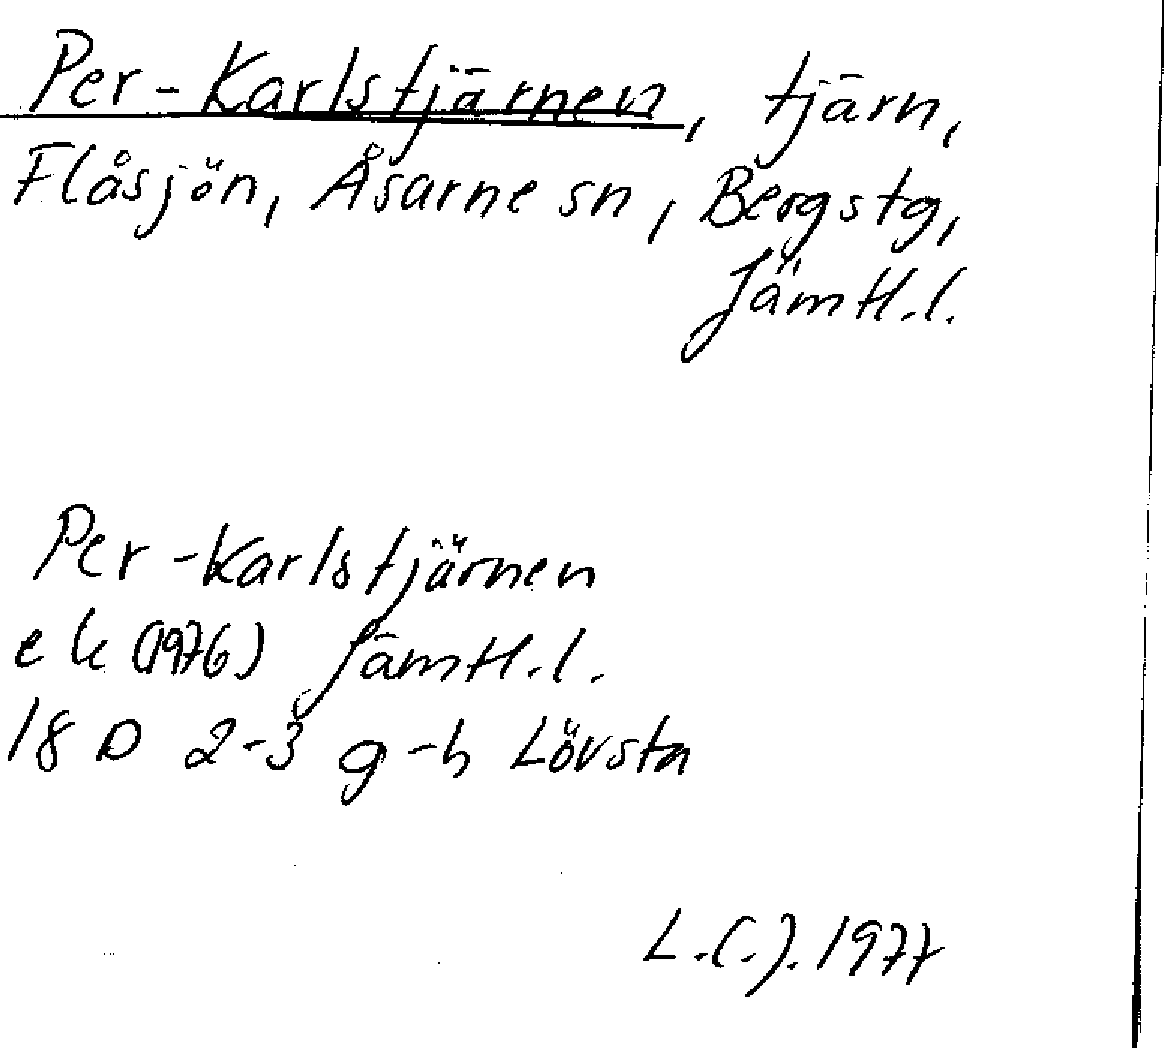 Per-Karlstjärnen, tjärn,
Flåsjön, Åsarne sn, Bergstg,
Jämtl.l.
Per-Karlstjärnen
ek (1976) Jämtl.l.
18 D 2-3 g-h Lövsta
L.C.J. 1977